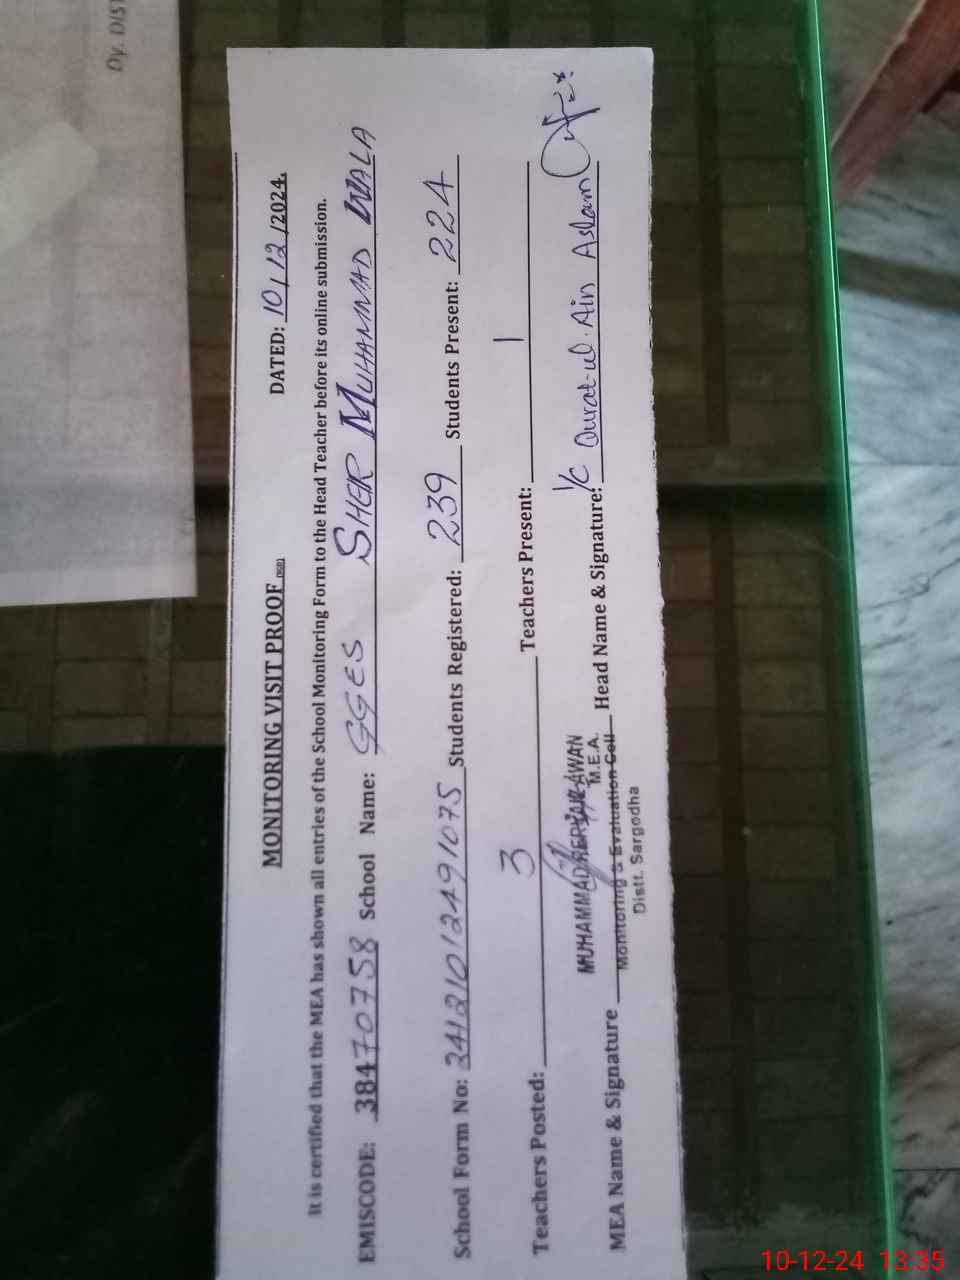 Dy. DIST
MONITORING VISIT PROOF
DATED: 10/12/2024.
It is certified that the MEA has shown all entries of the School Monitoring Form to the Head Teacher before its online submission.
EMISCODE: 38470758 School Name: GGES SHER MUHAMMAD WALA
School Form No: 2412101249 1075 Students Registered: 239 Students Present: 224
Teachers Posted: 3 Teachers Present: 1
MEA Name & Signature Head Name & Signature: I/C Qurat-ul-Ain Aslam
MUHAMMAD AWAN
M.E.A.
Monitoring & Evaluation Cell
Distt. Sargodha
10-12-24 13:35